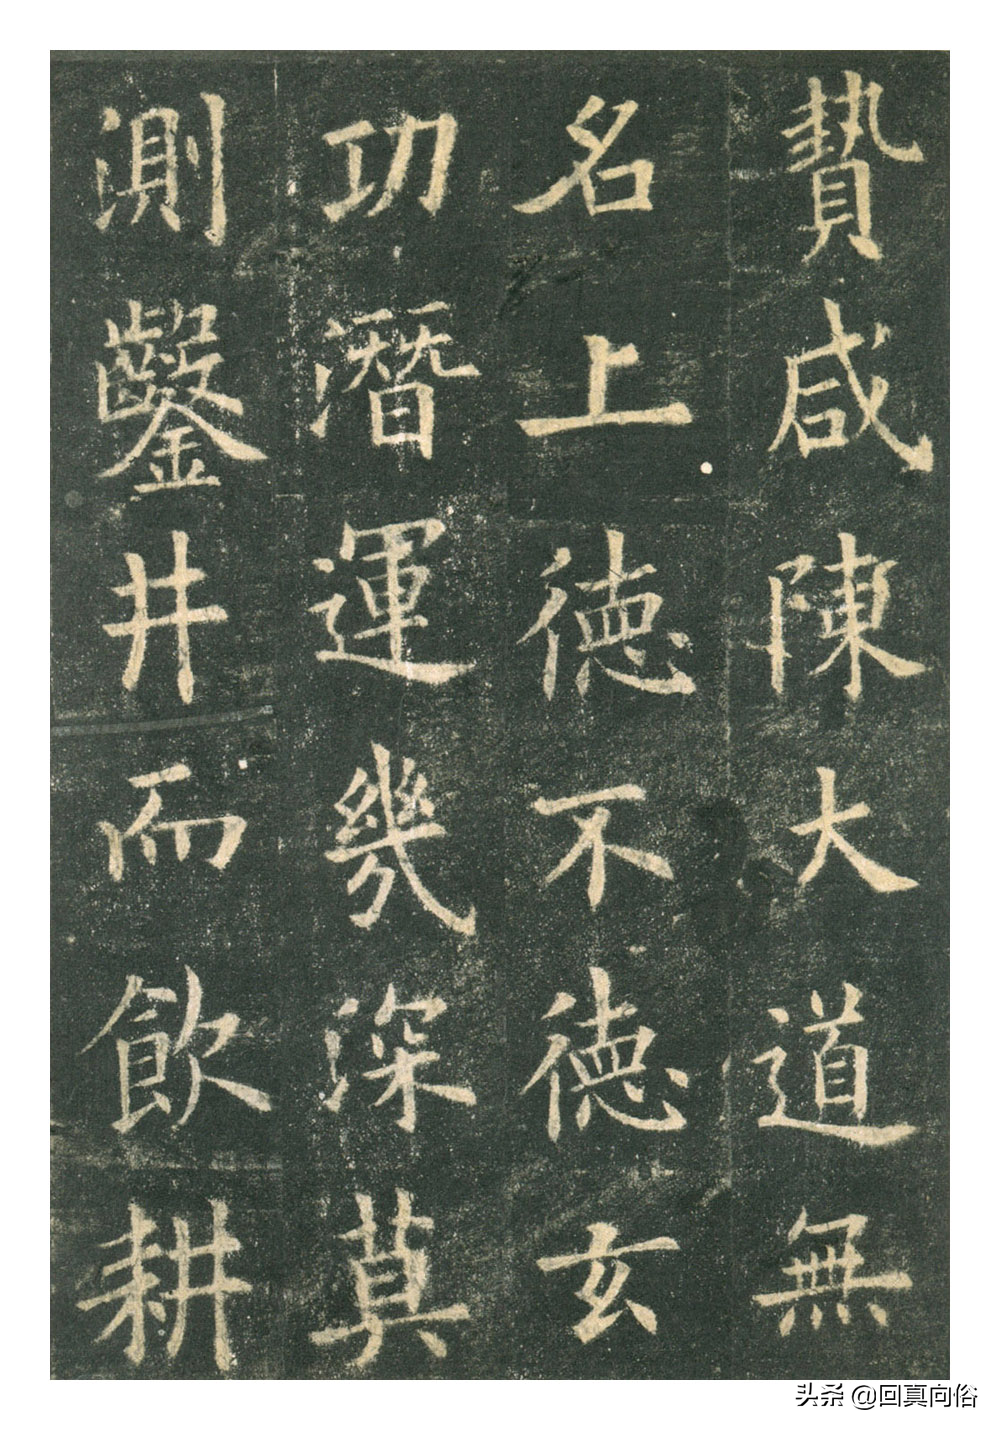 贄咸陳大道無
名上德不德玄
功潛運幾深莫
測鑿井而飲耕
头条 @回真向俗